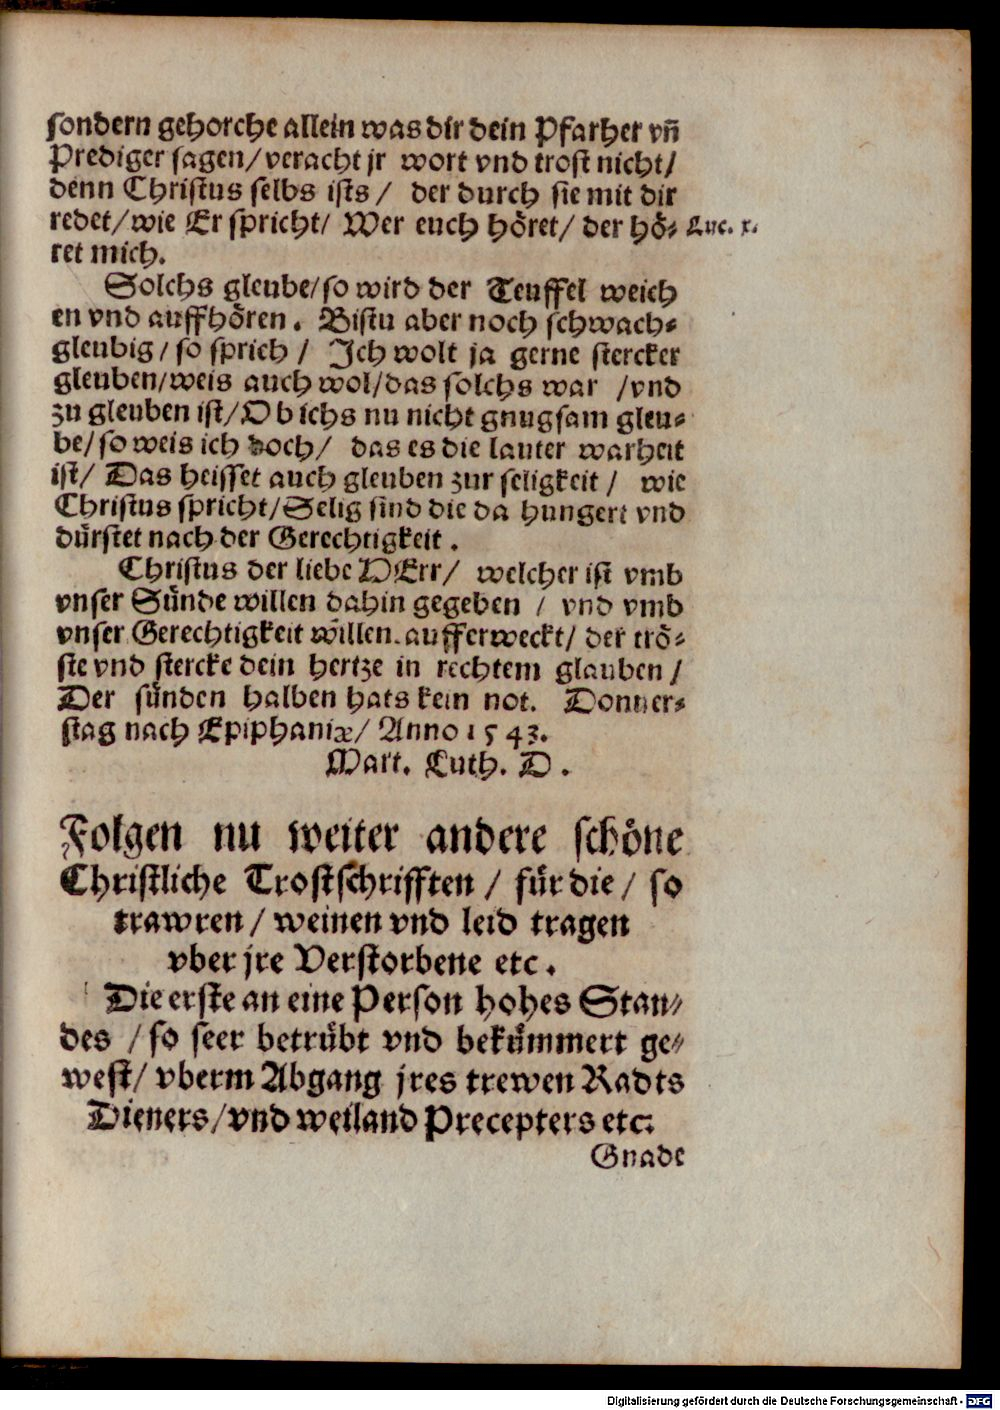 sondern gehorche allein was dir dein Pfarher vñ
Prediger sagen/veracht jr wort vnd trost nicht/
denn Christus selbs ists / der durch sie mit dir
redet/wie Er spricht/ Wer euch höret/ der hö-
Luc. x.
ret mich.
Solchs gleube/so wird der Teuffel weich
en vnd auffhören. Bistu aber noch schwach-
gleubig/ so sprich / Ich wolt ja gerne stercker
gleuben/weis auch wol/das solchs war /vnd
zu gleuben ist/Ob ichs nu nicht gnugsam gleu-
be/so weis ich doch/ das es die lauter warheit
ist/ Das heisset auch gleuben zur seligkeit / wie
Christus spricht/Selig sind die da hungert vnd
dürstet nach der Gerechtigkeit.
Christus der liebe HErr/ welcher ist vmb
vnser Sünde willen dahin gegeben / vnd vmb
vnser Gerechtigkeit willen aufferweckt/ der trö-
ste vnd stercke dein hertze in rechtem glauben /
Der sünden halben hats kein not. Donner-
stag nach Epiphaniæ/ Anno 1543.
Mart. Luth. D.
Folgen nu weiter andere schöne
Christliche Trostschrifften / für die / so
trawren / weinen vnd leid tragen
vber jre Verstorbene etc.
Die erste an eine Person hohes Stan-
des / so seer betrübt vnd bekümmert ge-
west/ vberm Abgang jres trewen Radts
Dieners/vnd weiland Precepters etc.
Gnade
Digitalisierung gefördert durch die Deutsche Forschungsgemeinschaft - DFG